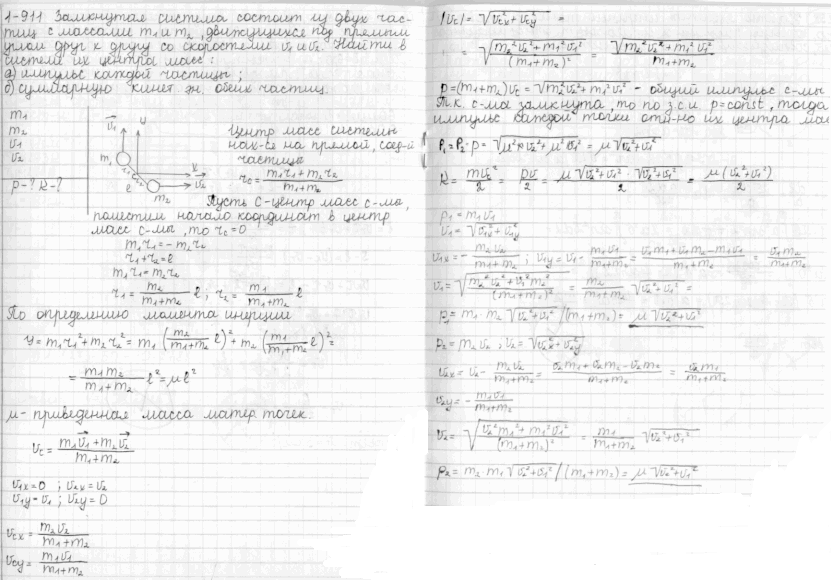 1-911 Замкнутая система состоит из двух час-
тиц с массами m1 и m2, движущихся под прямым
углом друг к другу со скоростями v1 и v2. Найти в
системе их центра масс:
а) импульс каждой частицы;
б) суммарную кинет. эн. обеих частиц.
m1
m2
v1
v2
p-? K-?
v1
y
m1
r1
r2
l
x
v2
m2
Центр масс системы
нах-ся на прямой, соед-й
частицы
rc = (m1r1+m2r2)/(m1+m2)
Пусть C-центр масс с-мы,
поместим начало координат в центр
масс с-мы, то rc=0
m1r1=-m2r2
r1+r2=l
m1r1=m2r2
r1= m2/(m1+m2) l; r2= m1/(m1+m2) l
По определению момента инерции
y=m1r1²+m2r2²= m1 (m2/(m1+m2) l)²+m2 (m1/(m1+m2) l)²=
= m1m2/(m1+m2) l²=μl²
μ- приведенная масса матер точек.
vc= (m1v1+m2v2)/(m1+m2)
v1x=0 ; v2x=v2
v1y=v1 ; v2y=0
vcx= m2v2/(m1+m2)
vcy= m1v1/(m1+m2)
|vc|= √(vcx²+vcy²) =
= √((m2²v2²+m1²v1²)/(m1+m2)²) = √(m2²v2²+m1²v1²)/(m1+m2)
p=(m1+m2)vc=√(m2²v2²+m1²v1²) - общий импульс с-мы
Т.к. с-ма замкнута, то по з.с.и. p=const, тогда
импульс каждой точки отн-но их центра мас
P1=P2=p=√(μ²v2²+μ²v1²)=μ√(v2²+v1²)
K= mv²/2 = pv/2 = μ√(v2²+v1²)·√(v2²+v1²)/2 = μ(v2²+v1²)/2
p1=m1v1
v1=√(v1x²+v1y²)
v1x=- m2v2/(m1+m2) ; v1y=v1- m1v1/(m1+m2)= (v1m1+v1m2-m1v1)/(m1+m2) = v1m2/(m1+m2)
v1=√((m2²v2²+v1²m2²)/(m1+m2)²)= m2/(m1+m2) √(v2²+v1²) =
p1=m1·m2√(v2²+v1²)/(m1+m2)= μ√(v2²+v1²)
p2=m2v2 ; v2=√(v2x²+v2y²)
v2x=v2- m2v2/(m1+m2)= (v2m1+v2m2-v2m2)/(m1+m2) = v2m1/(m1+m2)
v2y=- m1v1/(m1+m2)
v2= √((v2²m1²+m1²v1²)/(m1+m2)²) = m1/(m1+m2) √(v2²+v1²)
p2=m2·m1√(v2²+v1²)/(m1+m2)= μ√(v2²+v1²)